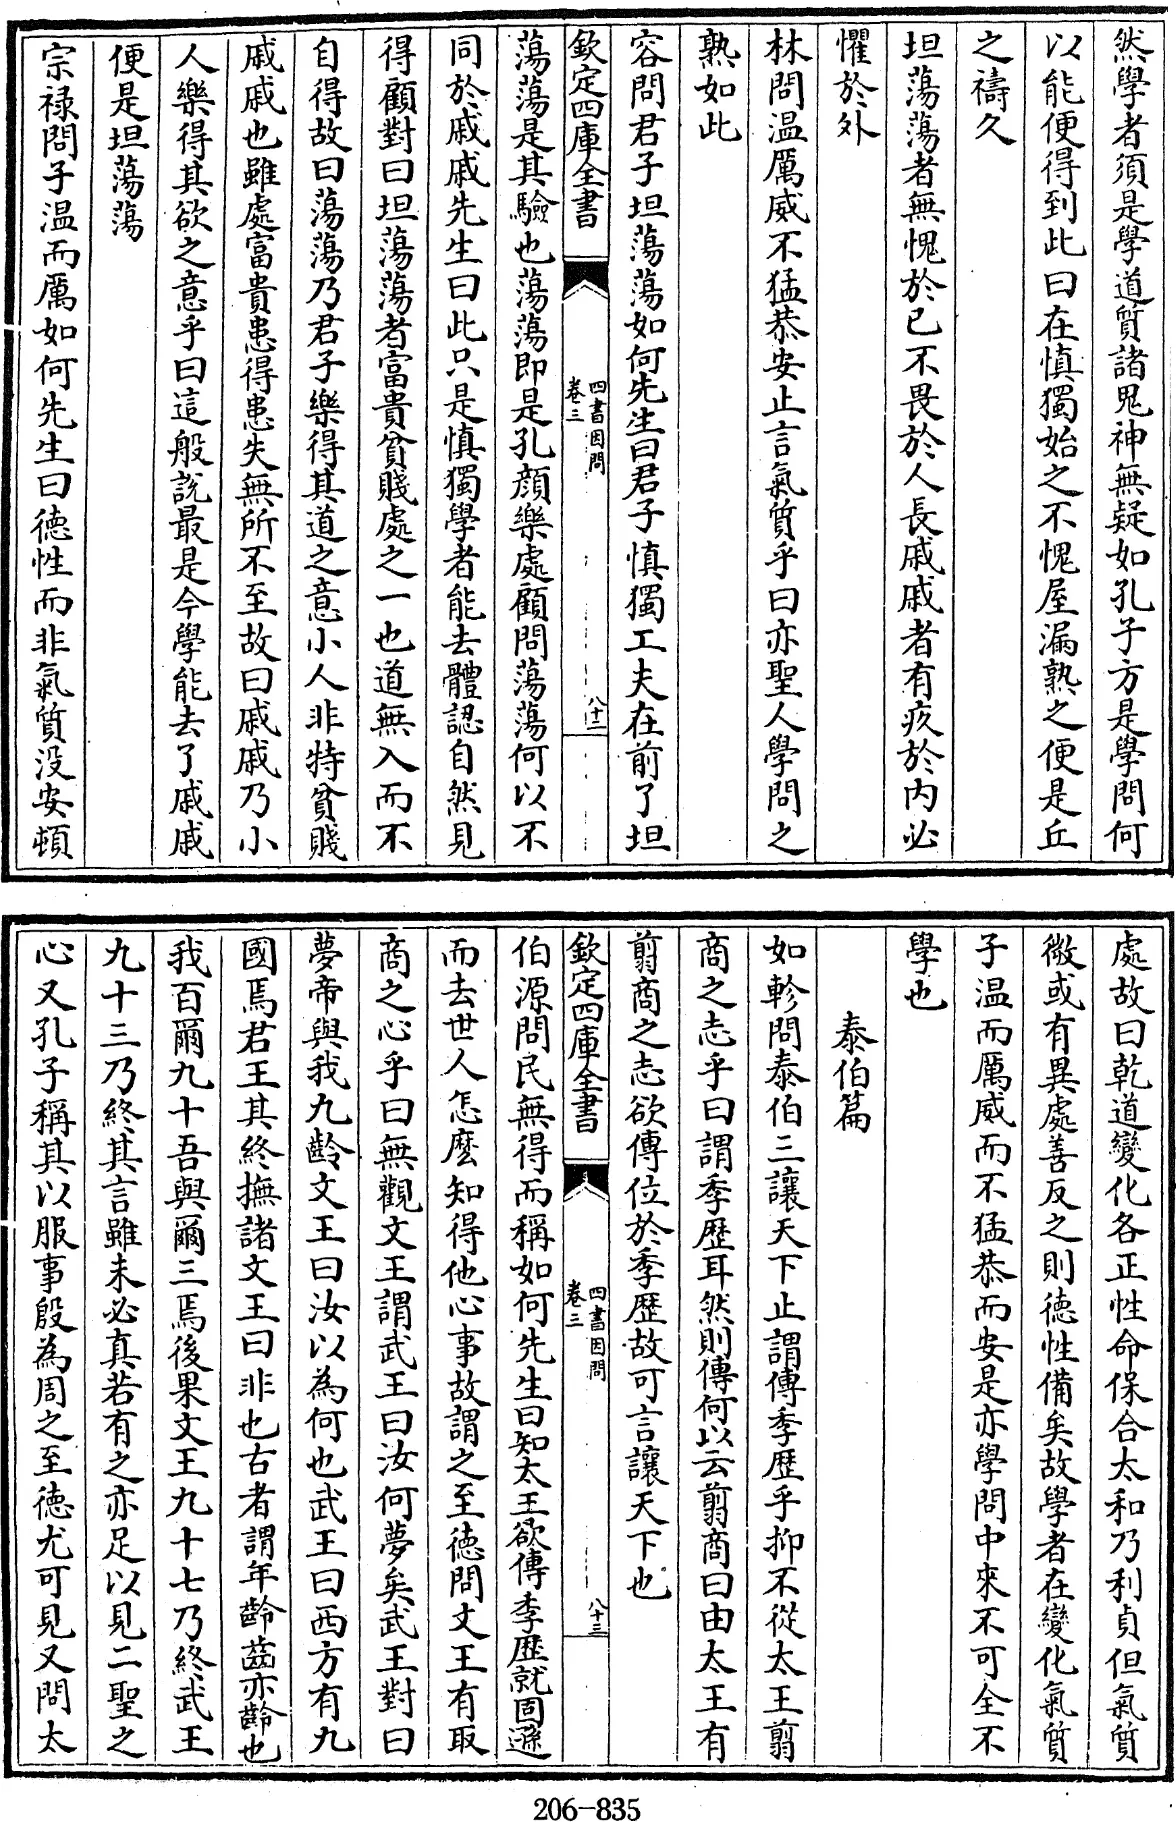 然學者須是學道質諸鬼神無疑如孔子方是學問何
以能便得到此曰在慎獨始之不愧屋漏熟之便是丘
之禱久
坦蕩蕩者無愧於已不畏於人長戚戚者有疚於內必
懼於外
林問温厲威不猛恭安止言氣質乎曰亦聖人學問之
熟如此
容問君子坦蕩蕩如何先生曰君子慎獨工夫在前了坦
欽定四庫全書
四書因問
卷三
八十二
蕩蕩是其驗也蕩蕩即是孔顔樂處顧問蕩蕩何以不
同於戚戚先生曰此只是慎獨學者能去體認自然見
得顧對曰坦蕩蕩者富貴貧賤處之一也道無入而不
自得故曰蕩蕩乃君子樂得其道之意小人非特貧賤
戚戚也雖處富貴患得患失無所不至故曰戚戚乃小
人樂得其欲之意乎曰這般說最是今學能去了戚戚
便是坦蕩蕩
宗禄問子温而厲如何先生曰德性而非氣質没安頓
處故曰乾道變化各正性命保合太和乃利貞但氣質
微或有異處善反之則德性備矣故學者在變化氣質
子温而厲威而不猛恭而安是亦學問中來不可全不
學也
泰伯篇
如軫問泰伯三讓天下止謂傳季歴乎抑不從太王翦
商之志乎曰謂季歴耳然則傳何以云翦商曰由太王有
翦商之志欲傳位於季歴故可言讓天下也
欽定四庫全書
四書因問
卷三
八十三
伯源問民無得而稱如何先生曰知太王欲傳季歴就固遜
而去世人怎麽知得他心事故謂之至德問文王有取
商之心乎曰無觀文王謂武王曰汝何夢矣武王對曰
夢帝與我九齡文王曰汝以為何也武王曰西方有九
國焉君王其終撫諸文王曰非也古者謂年齡齒亦齡也
我百爾九十吾與爾三焉後果文王九十七乃終武王
九十三乃終其言雖未必真若有之亦足以見二聖之
心又孔子稱其以服事殷為周之至德尤可見又問太
206-835